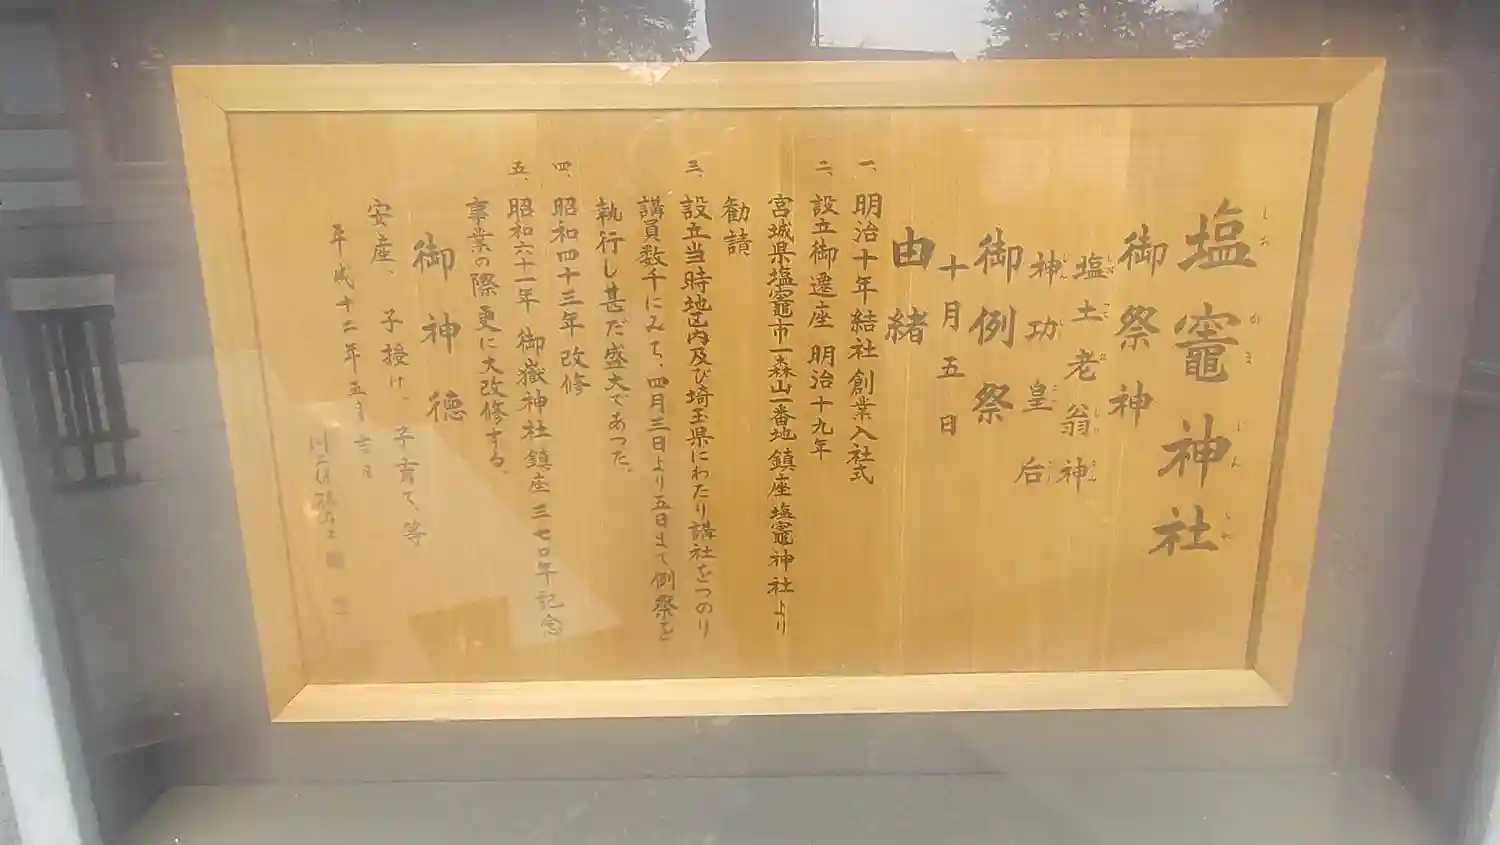 塩竈神社
しおがまじんしゃ
御祭神
塩土老翁神
神功皇后
御例祭
十月五日
由緒
一、明治十年結社創業入社式
二、設立御遷座 明治十九年
宮城県塩竈市一森山一番地鎮座塩竈神社より
勧請
三、設立当時地区内及び埼玉県にわたり講社をつのり
講員数千にみち、四月三日より五日まで例祭を
執行し甚だ盛大であつた。
四、昭和四十三年改修
五、昭和六十一年 御嶽神社鎮座三七〇年記念
事業の際更に大改修する。
御神徳
安産、子授け、子育て、等
平成十二年五月吉日